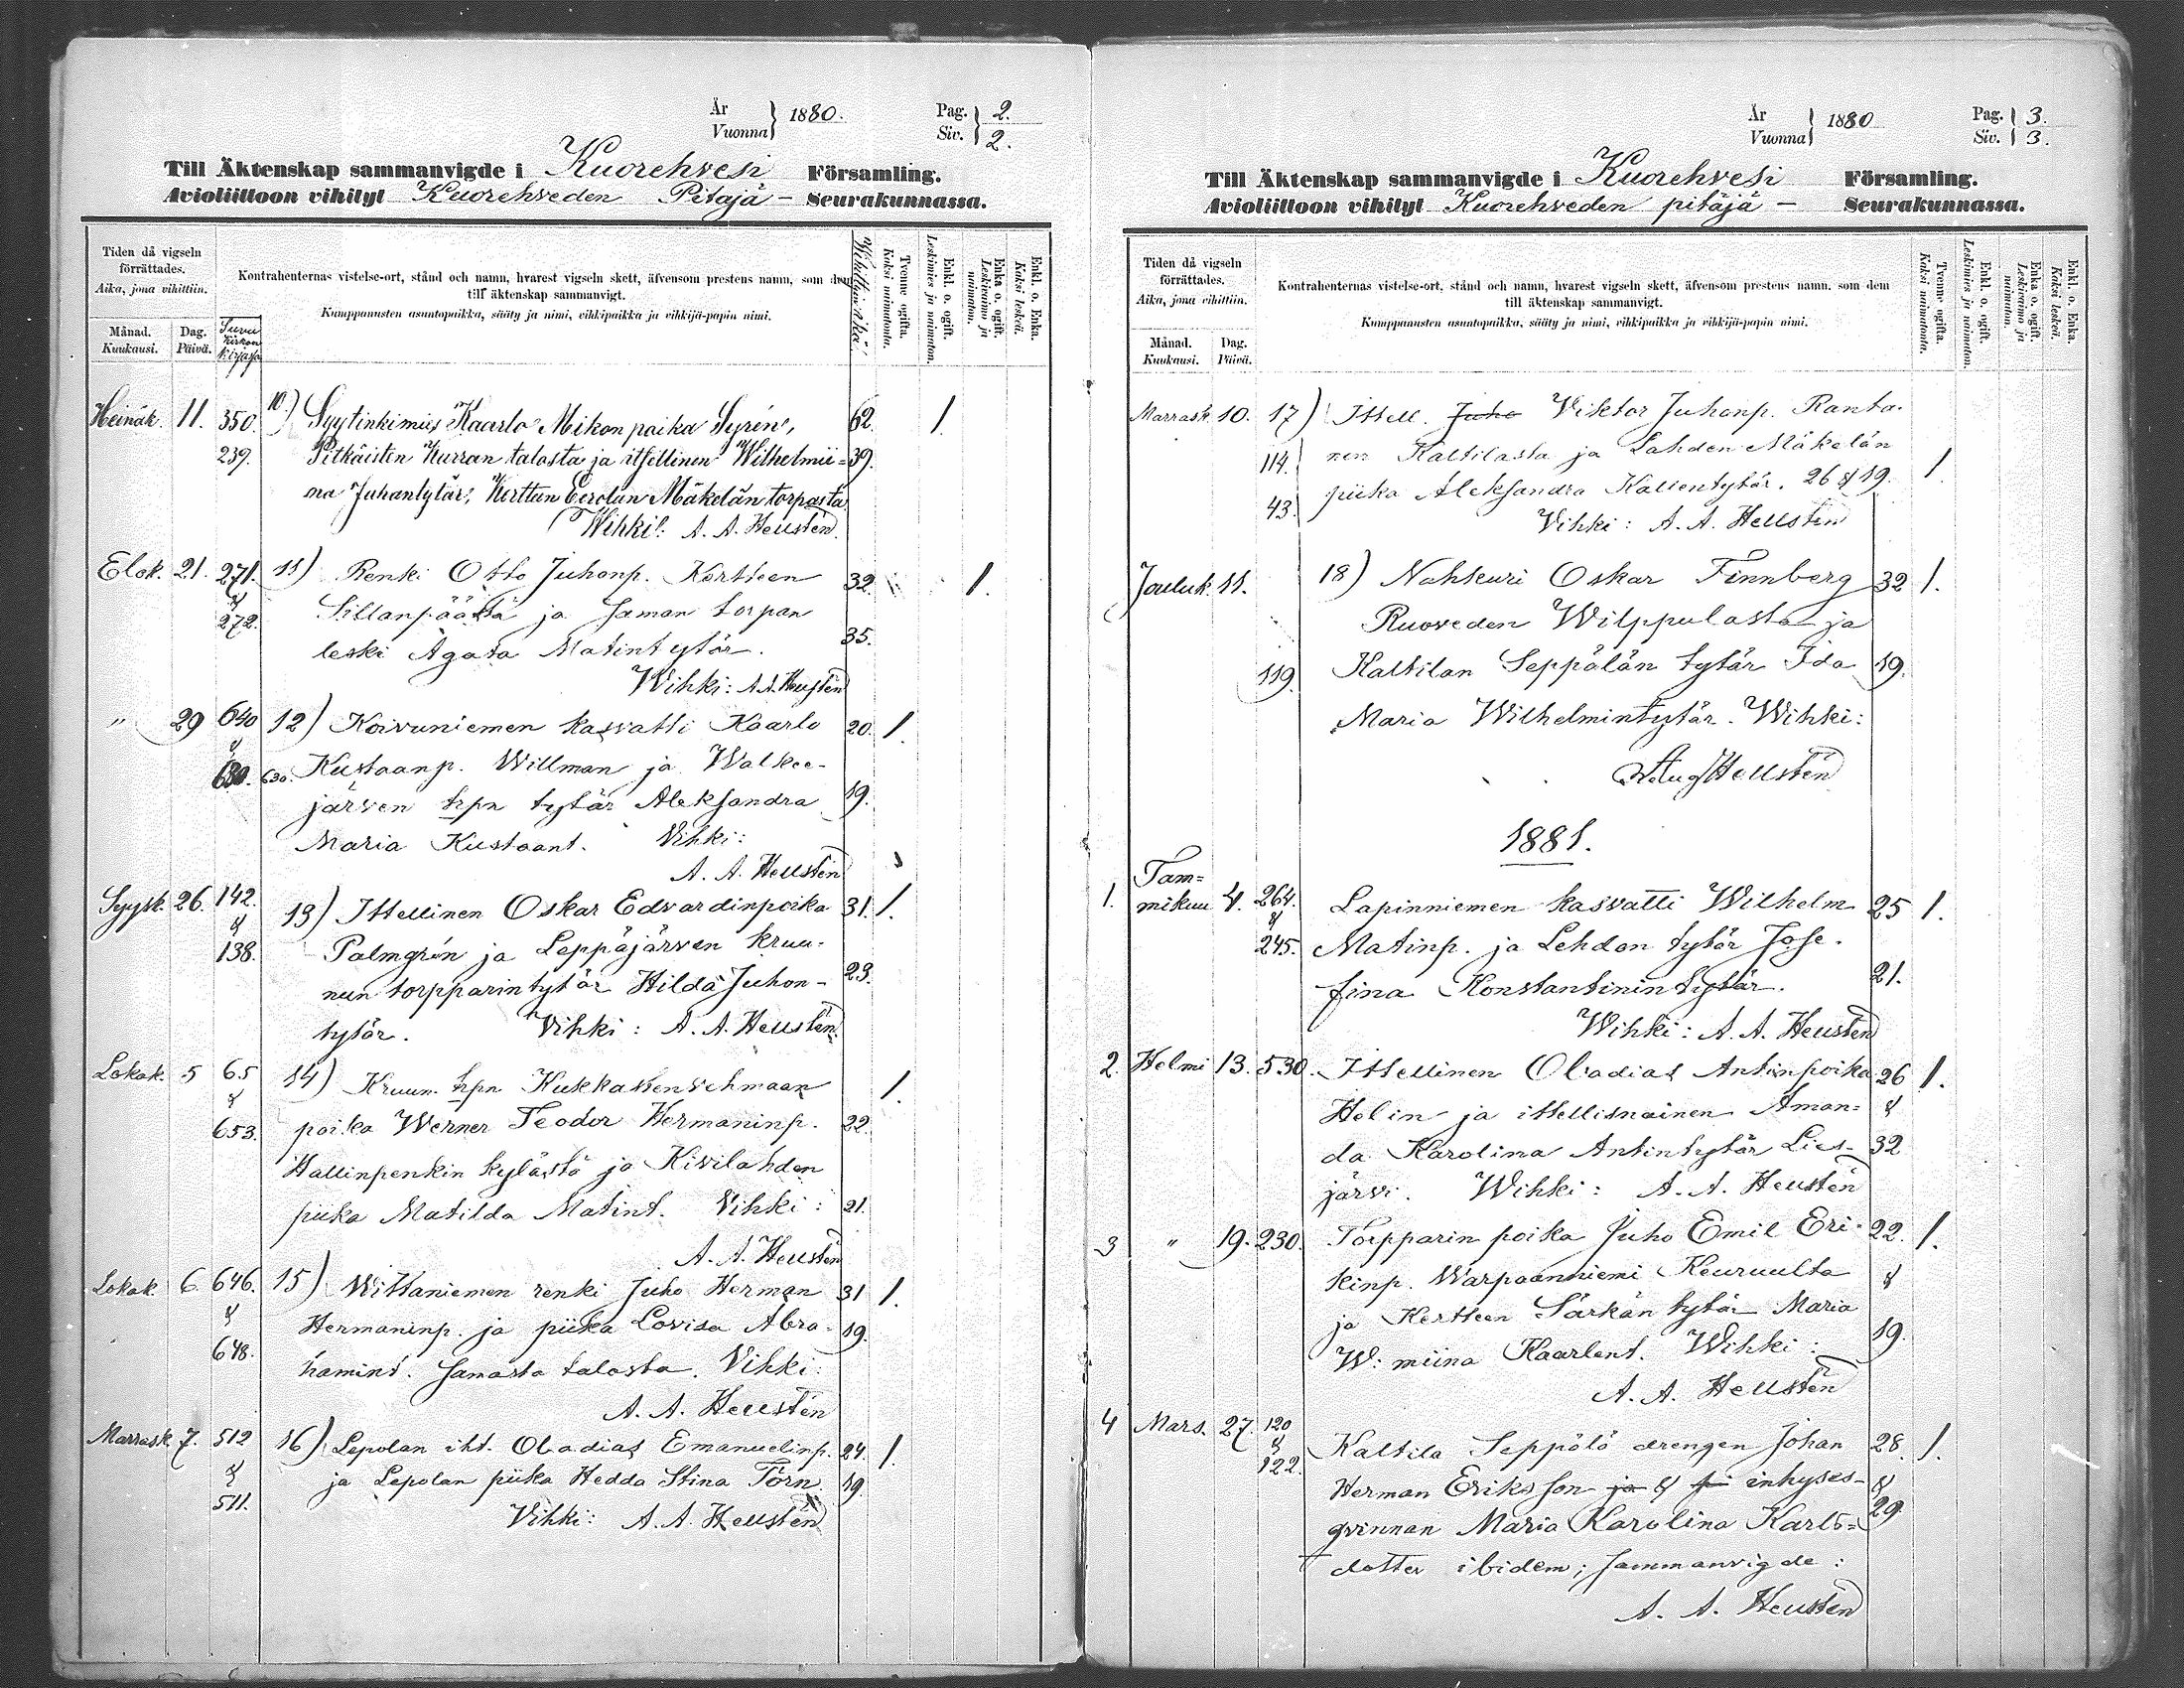 År
Vuonna } 1880.
Pag. } 2.
Siv. } 2.
Till Äktenskap sammanvigde i Kuorehvesi Församling.
Avioliittoon vihityt Kuorehveden Pitäjä – Seurakunnassa.
Tiden då vigseln
förrättades.
Aika, jona vihittiin.
Månad.
Kuukausi.
Dag.
Päivä.
Kontrahenternas vistelse-ort, stånd och namn, hvarest vigseln skett, äfvensom prestens namn, som dem
till äktenskap sammanvigt.
Kumppanusten asuntopaikka, sääty ja nimi, vihkipaikka ja vihkijä-papin nimi.
Tvenne ogifta.
Kaksi naimatonta.
Enkl. o. ogift.
Leskimies ja naimaton.
Enka o. ogift.
Leskivaimo ja
naimaton.
Enkl. o. Enka.
Kaksi leskeä.
Heinäk. 11. 350. 10.) Syytinkimies Kaarlo Mikonpoika Syrén, 62. 1.
239. Pitkäisten Kurran talosta ja itsellinen Wilhelmii= 39.
na Juhantytär, Kerttun Eerolan Mäkelän torpasta
Wihki: A. A. Hellstén
Elok. 21. 271. 11) Renki Otto Juhonp. Kertteen 32. 1.
&
272. Sillanpäästä ja saman torpan
leski Agata Matintytär. 35.
Wihki: A. A. Hellstén
" 29 640 12) Koivuniemen kasvatti Kaarlo 20. 1.
&
680. 630. Kustaanp. Willman ja Walkee-
järven trpn tytär Aleksandra 19.
Maria Kustaant. Vihki:
A. A. Hellstén
Syysk. 26. 142. 13) Ittellinen Oskar Edvardinpoika 31. 1.
&
138. Palmgrén ja Leppäjärven kruu-
nun torpparin tytär Hilda Juhon- 23.
tytär. Vihki: A. A. Hellstén
Lokak. 5 65 14) Kruun. trpn Kukkassenvehmaan 1.
&
653. poika Werner Teodor Hermaninp. 22.
Hallinpenkin kylästä ja Kivilahden
piika Matilda Matint. Vihki: 21.
A. A. Hellstén
Lokak. 6. 646. 15) Wittaniemen renki Juho Herman 31 1.
&
Hermaninp. ja piika Lovisa Abra- 19.
648. hamint. samasta talosta. Vihki:
A. A. Hellstén
Marrask. 7. 512 16) Lepolan iht. Obadias Emanuelinp. 24. 1.
&
ja Lepolan piika Hedda Stina Törn. 19.
511.
Vihki: A. A. Hellstén
År
Vuonna } 1880
Pag. } 3.
Siv. } 3.
Till Äktenskap sammanvigde i Kuorehvesi Församling.
Avioliittoon vihityt Kuorehveden pitäjä – Seurakunnassa.
Tiden då vigseln
förrättades.
Aika, jona vihittiin.
Månad.
Kuukausi.
Dag.
Päivä.
Kontrahenternas vistelse-ort, stånd och namn, hvarest vigseln skett, äfvensom prestens namn, som dem
till äktenskap sammanvigt.
Kumppanusten asuntopaikka, sääty ja nimi, vihkipaikka ja vihkijä-papin nimi.
Tvenne ogifta.
Kaksi naimatonta.
Enkl. o. ogift.
Leskimies ja naimaton.
Enka o. ogift.
Leskivaimo ja
naimaton.
Enkl. o. Enka.
Kaksi leskeä.
Marrask. 10. 17) Ittell. Juho Viktor Juhonp. Ranta-
114. nen Kaltilasta ja Lahden Mäkelän 1
43. piika Aleksandra Kallentytär. 26 & 19.
Vihki: A. A. Hellstén
Jouluk. 11. 18) Nahkuri Oskar Finnberg 32 1.
Ruoveden Wilppulasta ja
119. Kaltilan Seppälän tytär Ida 19.
Maria Wilhelmintytär. Wihki:
Aug Hellstén
1881.
1. Tam=
mikuu 4. 264. Lapinniemen kasvatti Wilhelm 25 1.
&
245. Matinp. ja Lehdon tytär Jose-
fina Konstantinintytär. 21.
Wihki: A. A. Hellstén
2. Helmi 13. 530. Ittellinen Obadias Antinpoika 26 1.
Helin ja ittellisnainen Aman= &
da Karolina Antintytär Lies- 32
järvi. Wihki: A. A. Hellstén
3 " 19. 230. Torpparin poika Juho Emil Eri- 22. 1.
kinp. Warpaanniemi Keuruulta &
ja Kertteen Särkän tytär Maria
W:miina Kaarlent. Wihki: 19.
A. A. Hellstén
4 Mars. 27. 120 Kaltila Seppälä drengen Johan 28. 1.
&
122. Herman Eriksson ja & pi inhyses- &
qvinnan Maria Karolina Karls= 29.
dotter ibidem; sammanvigde:
A. A. Hellstén